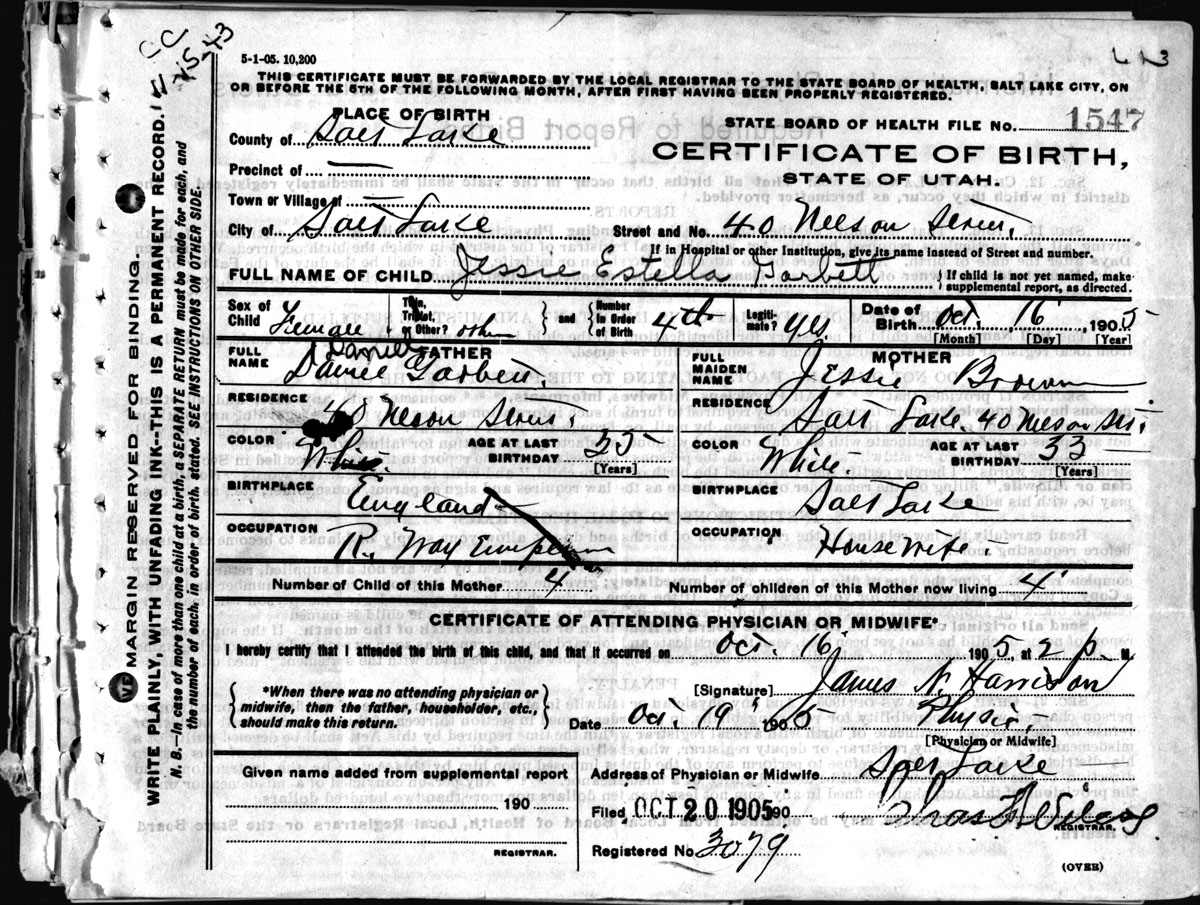 CC
4-15-43
5-1-05. 10,200
THIS CERTIFICATE MUST BE FORWARDED BY THE LOCAL REGISTRAR TO THE STATE BOARD OF HEALTH, SALT LAKE CITY, ON
OR BEFORE THE 5TH OF THE FOLLOWING MONTH, AFTER FIRST HAVING BEEN PROPERLY REGISTERED.
PLACE OF BIRTH
County of Salt Lake
STATE BOARD OF HEALTH FILE NO. 1547
CERTIFICATE OF BIRTH,
STATE OF UTAH.
Precinct of
Town or Village of
City of Salt Lake Street and No. 40 Nelson
If in Hospital or other Institution, give its name instead of Street and number.
FULL NAME OF CHILD Jessie Estella Garbett { If child is not yet named, make supplemental report, as directed.
Sex of Child Female Twin, Triplet, or Other? other and Number in Order of Birth 4th Legiti-mate? yes Date of Birth Oct. 16 1905
[Month] [Day] [Year]
FATHER
FULL NAME Daniel Garbett.
RESIDENCE 40 Nelson
COLOR White. AGE AT LAST BIRTHDAY 35 [Years]
BIRTHPLACE England
OCCUPATION R. Way
MOTHER
FULL MAIDEN NAME Jessie Brown
RESIDENCE Salt Lake. 40 Nelson
COLOR White. AGE AT LAST BIRTHDAY 33 [Years]
BIRTHPLACE Salt Lake
OCCUPATION House wife.
Number of Child of this Mother 4 Number of children of this Mother now living 4
CERTIFICATE OF ATTENDING PHYSICIAN OR MIDWIFE*
I hereby certify that I attended the birth of this child, and that it occurred on Oct. 16 1905, at 2 p. M.
{ *When there was no attending physician or midwife, then the father, householder, etc., should make this return. }
[Signature] James N. Harrison
Date Oct. 19 1905
[Physician or Midwife]
Given name added from supplemental report
190
REGISTRAR.
Address of Physician or Midwife Salt Lake
Filed OCT 20 1905 190
REGISTRAR.
Registered No. 3079
(OVER)
MARGIN RESERVED FOR BINDING.
WRITE PLAINLY, WITH UNFADING INK--THIS IS A PERMANENT RECORD.
N. B.--In case of more than one child at a birth, a SEPARATE RETURN must be made for each, and
the number of each, in order of birth, stated. SEE INSTRUCTIONS ON OTHER SIDE.